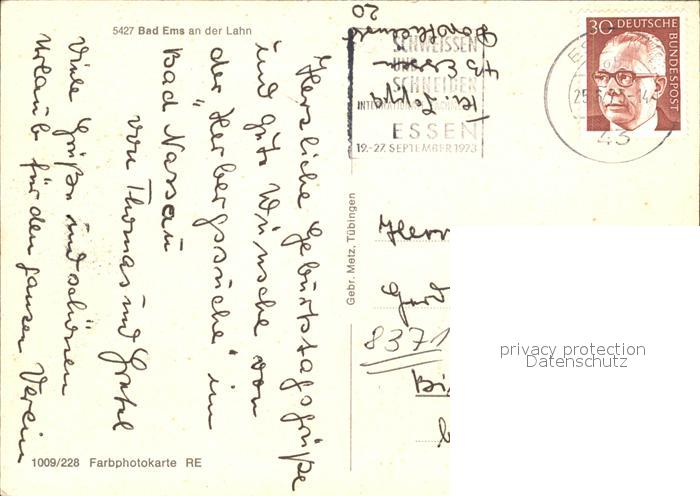 5427 Bad Ems an der Lahn
Herzliche Geburtstagsgrüße
und gute Wünsche von
der "Herbergssuche" im
Bad Nassau
von Thomas und Gretel
Viele Grüße und schönen
Urlaub für den ganzen Verein
1009/228 Farbphotokarte RE
Gebr. Metz, Tübingen
20
43 Essen
SCHWEISSEN
UND
SCHNEIDEN
ESSEN
19.-27. SEPTEMBER 1973
30 DEUTSCHE
BUNDESPOST
43
Herrn
8371
privacy protection
Datenschutz